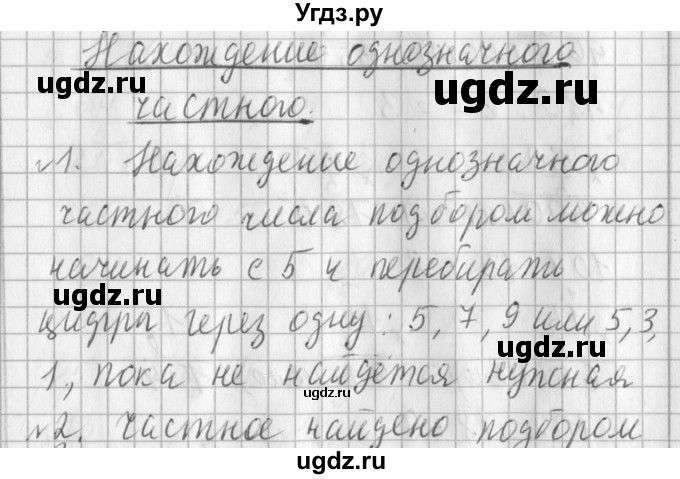 Угдз.ру
Нахождение однозначного
ugdz.ru
ugdz.ru
частного.
ugdz.ru
№1. Нахождение однозначного
ugdz.ru
частного числа подбором можно
начинать с 5 и перебирать
ugdz.ru
ugdz.ru
цифры через одну: 5, 7, 9 или 5, 3,
1, пока не найдётся нужная
ugdz.ru
№2. частное найдено подбором
ugdz.ru